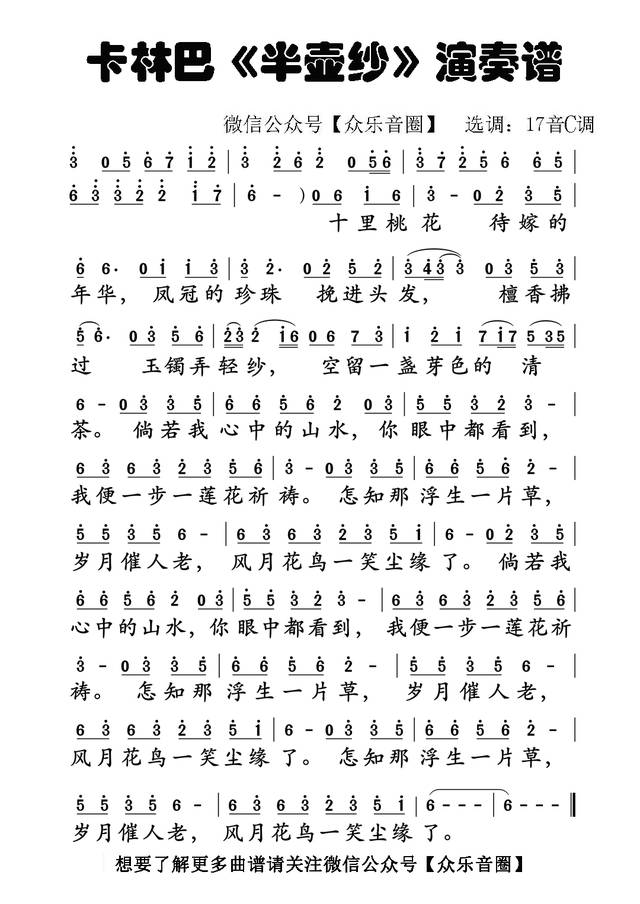 卡林巴《半壶纱》演奏谱
微信公众号【众乐音圈】 选调：17音C调
3 0 5 6 7 1 2 | 3 2 6 2 0 5 6 | 3 7 2 5 6 6 5 |
6 3 3 2 2 1 7 | 6 - ) 0 6 1 6 | 3 - 0 2 3 5 |
十里桃花 待嫁的
6 6· 0 1 1 3 | 3 2· 0 2 5 2 | 3 4 3 3 0 0 5 3 |
年华，凤冠的珍珠 挽进头发， 檀香拂
5 6· 0 3 5 6 | 2 3 2 1 6 0 6 7 3 | 1 2 1 7 1 7 5 3 5 |
过 玉镯弄轻纱， 空留一盏芽色的 清
6 - 0 3 3 5 | 6 6 5 6 2 0 3 | 5 5 3 2 3 - |
茶。 倘若我心中的山水，你眼中都看到，
6 3 6 3 2 3 5 6 | 3 - 0 3 3 5 | 6 6 5 6 2 - |
我便一步一莲花祈祷。 怎知那浮生一片草，
5 5 3 5 6 - | 6 3 6 3 2 3 5 1 | 6 - 0 2 3 5 |
岁月催人老， 风月花鸟一笑尘缘了。倘若我
6 6 5 6 2 0 3 | 5 5 3 2 3 - | 6 3 6 3 2 3 5 6 |
心中的山水，你眼中都看到， 我便一步一莲花祈
3 - 0 3 3 5 | 6 6 5 6 2 - | 5 5 3 5 6 - |
祷。 怎知那浮生一片草， 岁月催人老，
6 3 6 3 2 3 5 1 | 6 - 0 3 3 5 | 6 6 5 6 2 - |
风月花鸟一笑尘缘了。怎知那浮生一片草，
5 5 3 5 6 - | 6 3 6 3 2 3 5 1 | 6 - - - | 6 - - - ‖
岁月催人老， 风月花鸟一笑尘缘了。
想要了解更多曲谱请关注微信公众号【众乐音圈】